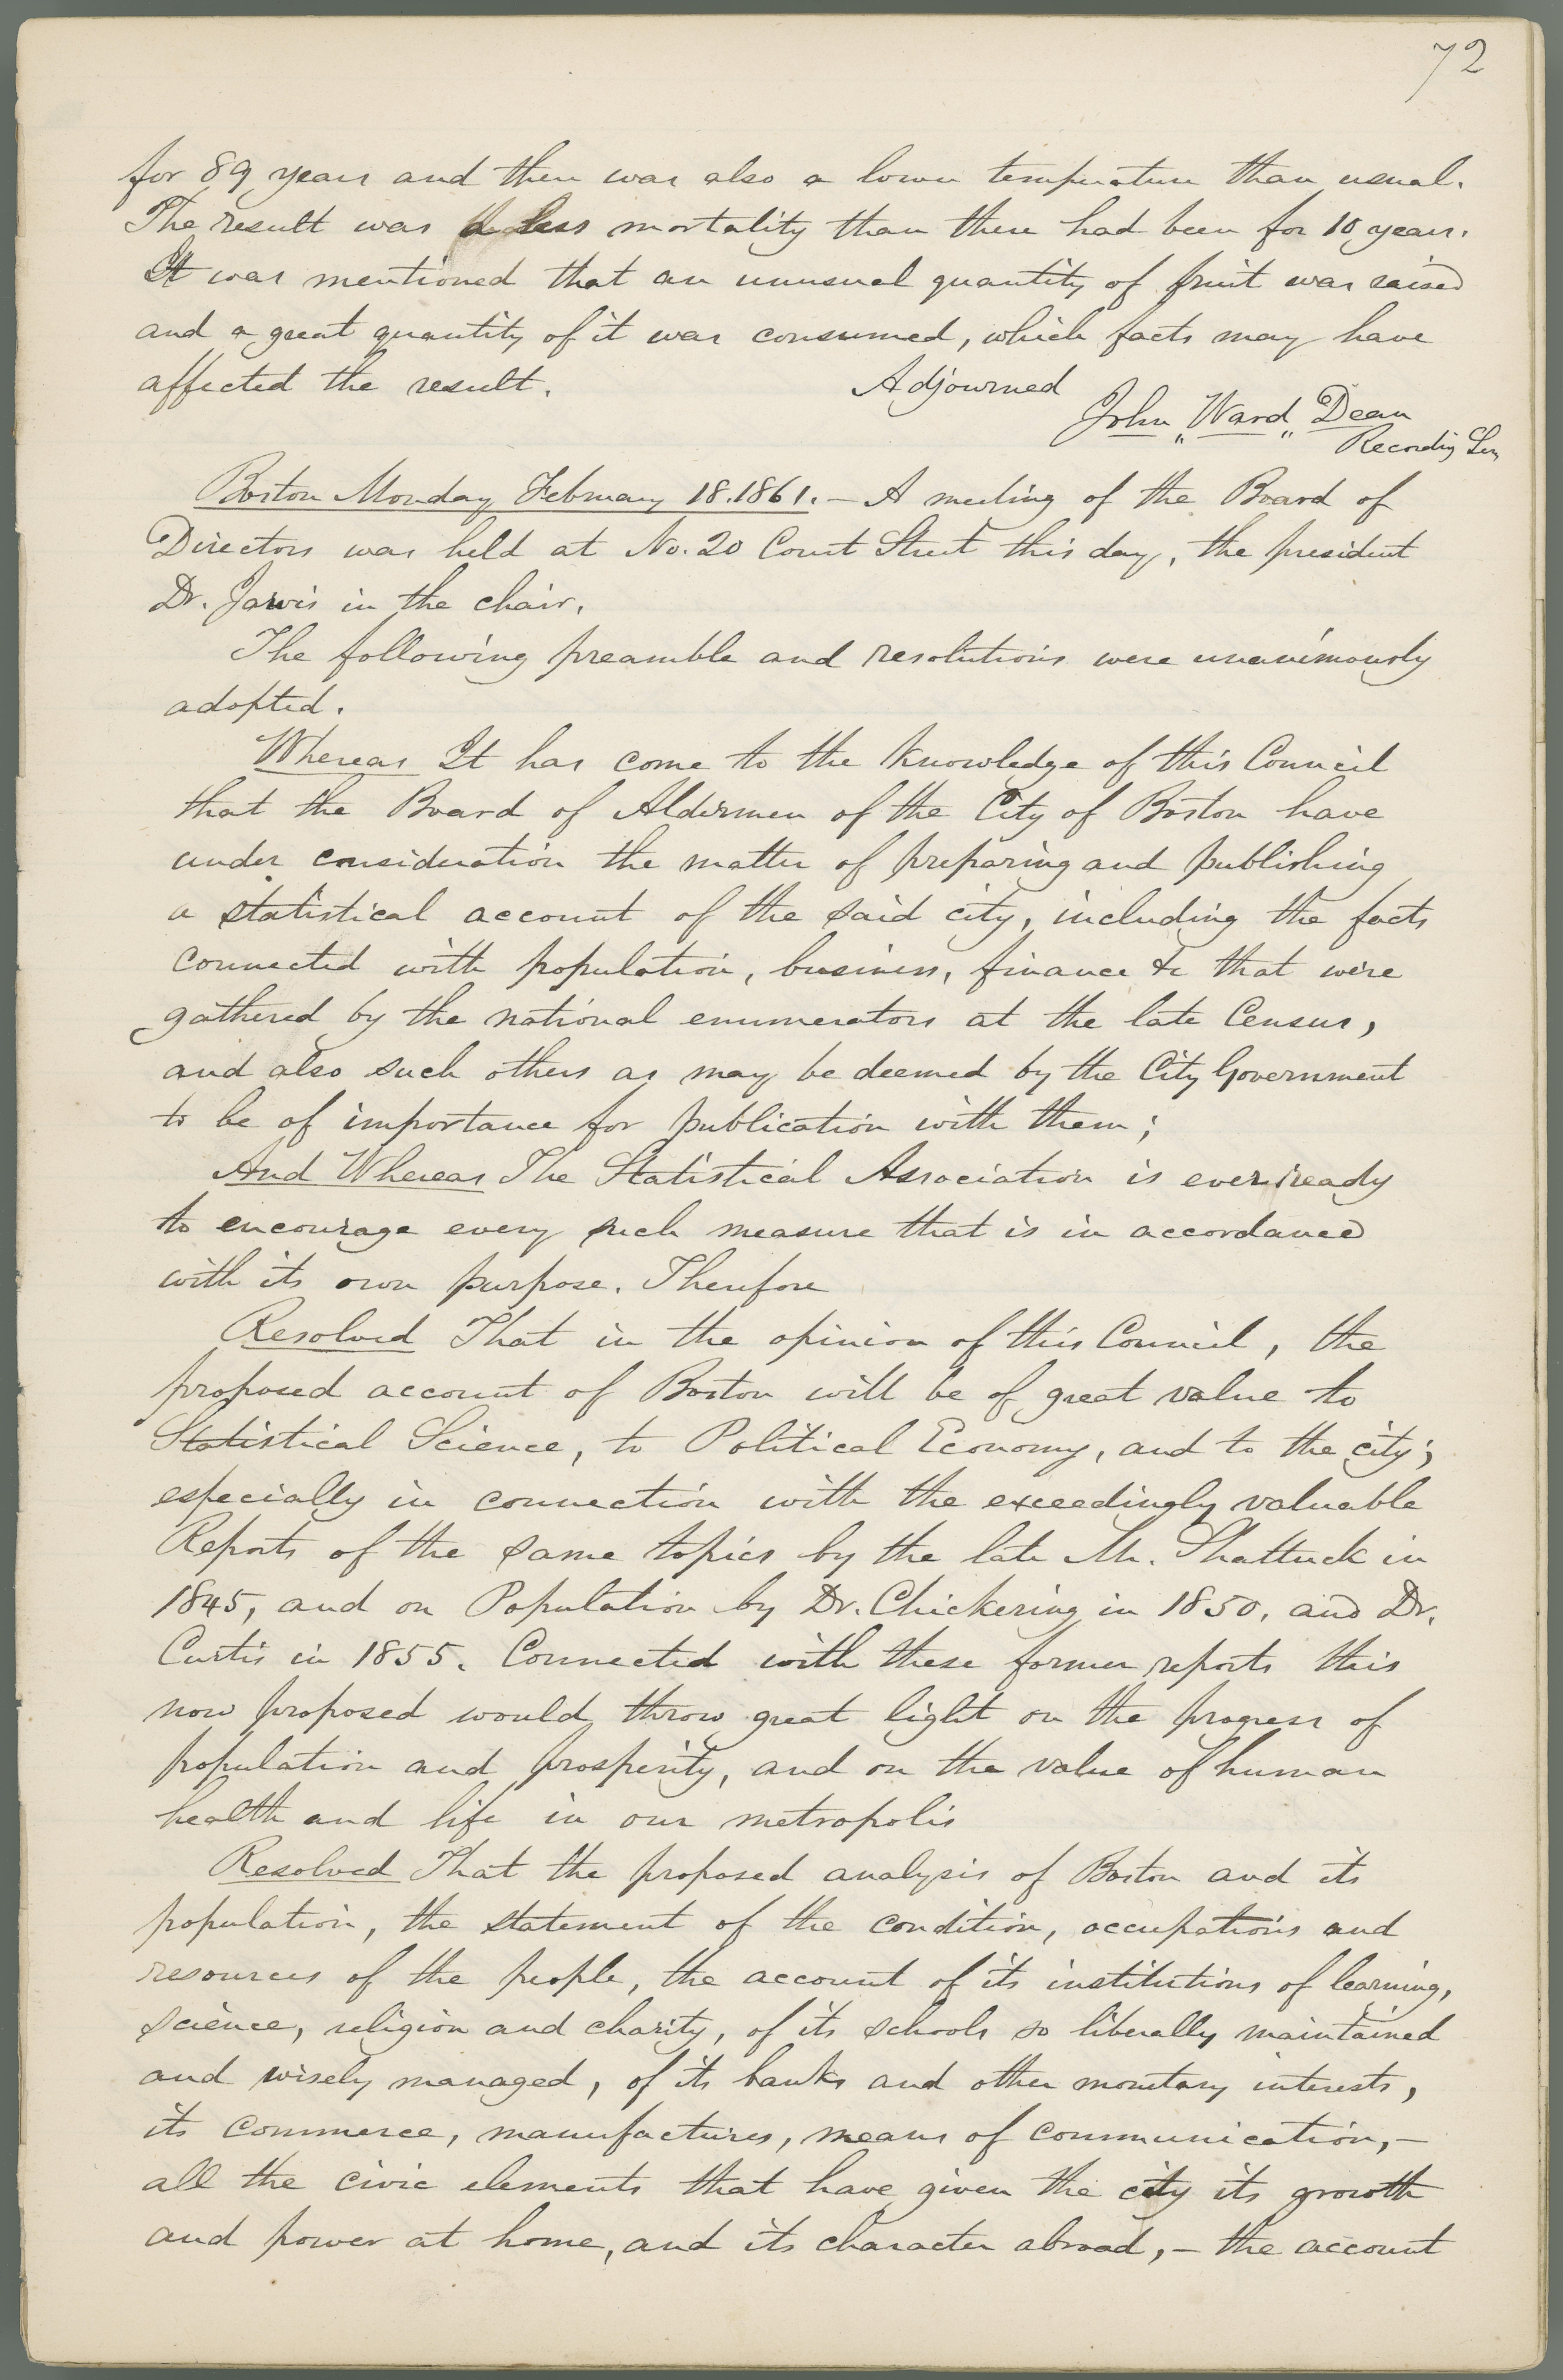 72
for 89 years and there was also a lower temperature than usual.
The result was a less mortality than there had been for 10 years.
It was mentioned that an unusual quantity of fruit was raised
and a great quantity of it was consumed, which facts may have
affected the result. Adjourned
John "Ward" Dean
Recording Sec
Boston Monday February 18.1861. – A meeting of the Board of
Directors was held at No. 20 Court Street this day, the president
Dr. Jarvis in the chair.
The following preamble and resolutions were unanimously
adopted.
Whereas It has come to the knowledge of this Council
that the Board of Aldermen of the City of Boston have
under consideration the matter of preparing and publishing
a statistical account of the said city, including the facts
connected with population, business, finance &c that were
gathered by the national enumerators at the late Census,
and also such others as may be deemed by the City Government
to be of importance for publication with them;
And Whereas The Statistical Association is ever ready
to encourage every such measure that is in accordance
with its own purpose. Therefore
Resolved That in the opinion of this Council, the
proposed account of Boston will be of great value to
Statistical Science, to Political Economy, and to the city;
especially in connection with the exceedingly valuable
Reports of the same topics by the late Mr. Shattuck in
1845, and on Population by Dr. Chickering in 1850, and Dr.
Curtis in 1855. Connected with these former reports this
now proposed would throw great light on the progress of
population and prosperity, and on the value of human
health and life in our metropolis
Resolved That the proposed analysis of Boston and its
population, the statement of the condition, occupations and
resources of the people, the account of its institutions of learning,
science, religion and charity, of its schools so liberally maintained
and wisely managed, of its banks and other monetary interests,
its commerce, manufactures, means of communication, –
all the civic elements that have given the city its growth
and power at home, and its character abroad, – the account